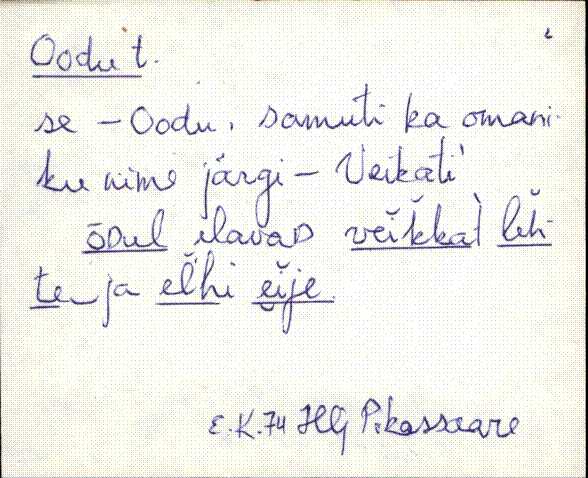 Oodu t.
se – Oodu, samuti ka omani-
ku nime järgi – Veikati
ōDul elavaD veĭkkat lěh-
te ja elhi eije.
E.K. 74 HG Pikassaare